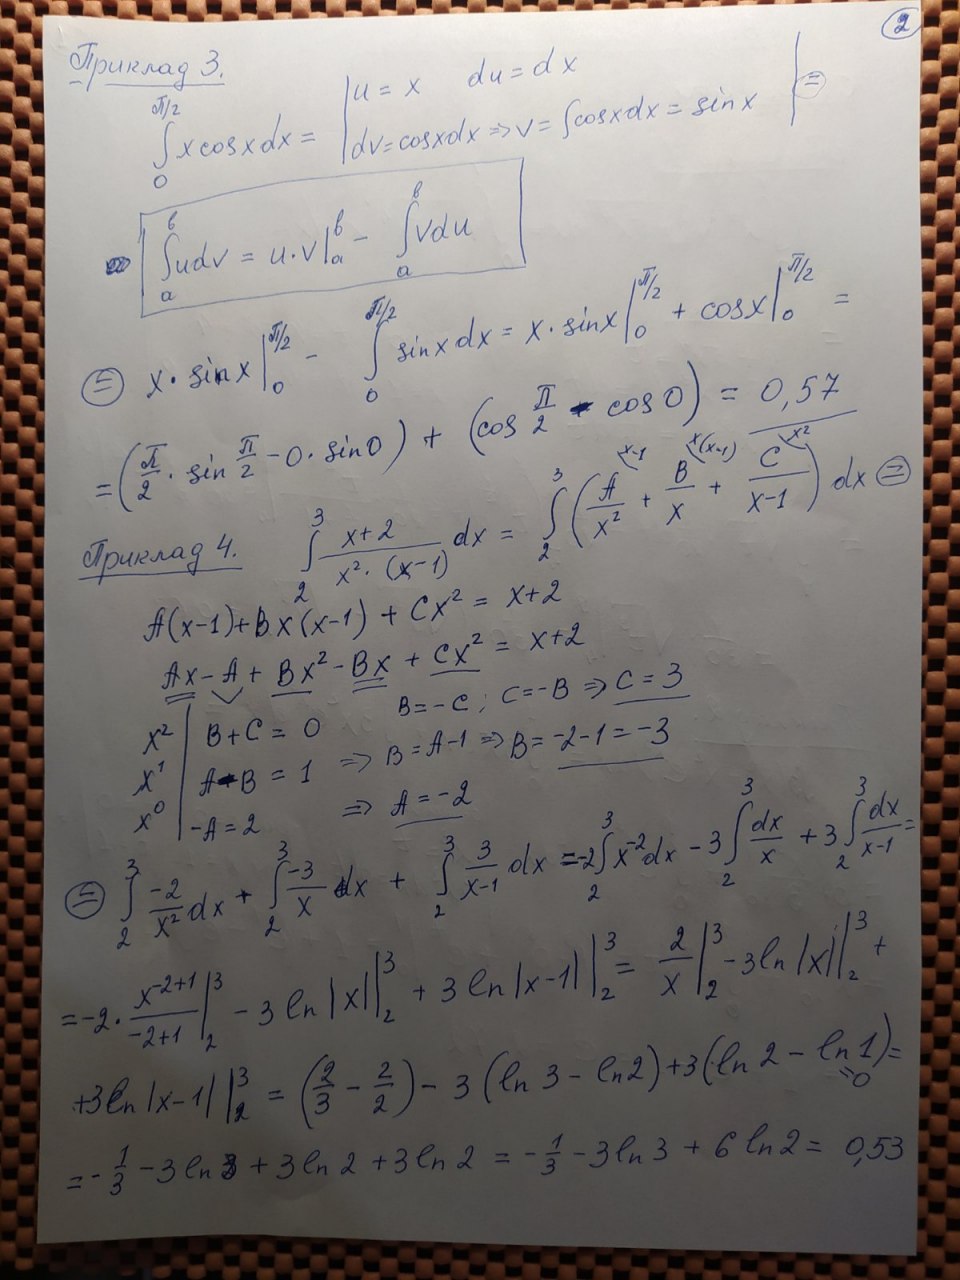 2
Приклад 3.
∫₀^{π/2} x cosx dx = | u = x du = dx
dv = cosxdx => v = ∫cosxdx = sinx | ⊜
∫ₐᵇ udv = u·v|ₐᵇ - ∫ₐᵇ vdu
⊜ x·sinx|₀^{π/2} - ∫₀^{π/2} sinx dx = x·sinx|₀^{π/2} + cosx|₀^{π/2} =
= (π/2 · sin π/2 - 0·sin0) + (cos π/2 - cos0) = 0,57
Приклад 4. ∫₂³ (x+2)/(x²·(x-1)) dx = ∫₂³ (A/x² + B/x + C/(x-1)) dx ⊜
x-1 x(x-1) x²
A(x-1)+Bx(x-1) + Cx² = x+2
Ax - A + Bx² - Bx + Cx² = x+2
x² | B+C = 0 B = -C ; C = -B => C = 3
x¹ | A-B = 1 => B = A-1 => B = -2-1 = -3
x⁰ | -A = 2 => A = -2
⊜ ∫₂³ -2/x² dx + ∫₂³ -3/x dx + ∫₂³ 3/(x-1) dx = -2∫₂³ x⁻² dx - 3∫₂³ dx/x + 3∫₂³ dx/(x-1) =
= -2 · x^{-2+1}/(-2+1)|₂³ - 3 ln|x||₂³ + 3 ln|x-1||₂³ = 2/x|₂³ - 3 ln|x||₂³ +
+3 ln|x-1||₂³ = (2/3 - 2/2) - 3(ln3 - ln2) + 3(ln2 - ln1) =
=0
= -1/3 - 3 ln3 + 3 ln2 + 3 ln2 = -1/3 - 3 ln3 + 6 ln2 = 0,53